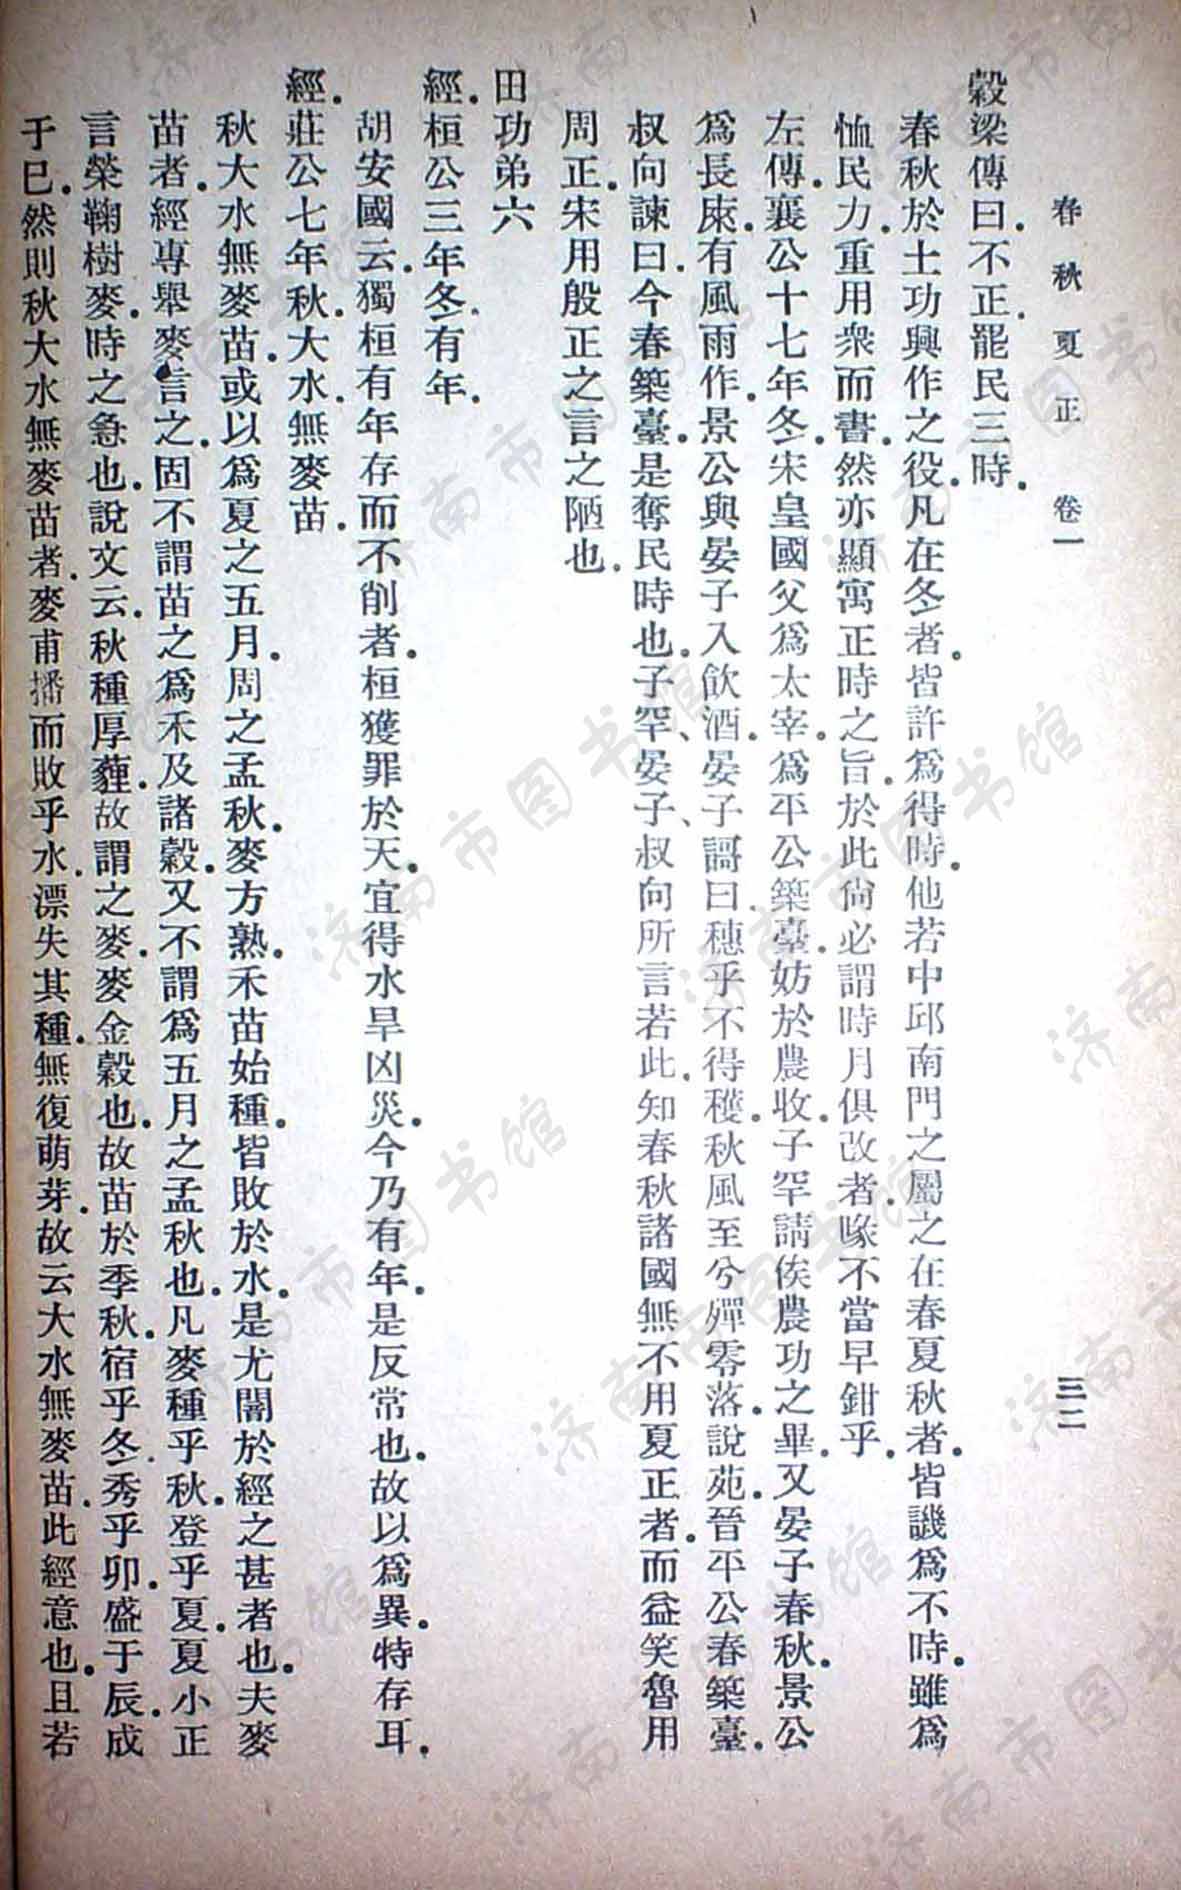 春秋夏正　卷一　三二
穀梁傳曰．不正．罷民三時．
春秋於土功興作之役．凡在冬者．皆許爲得時．他若中邱南門之屬．之在春夏秋者．皆譏爲不時．雖爲
恤民力．重用衆而書．然亦顯寓正時之旨．於此尙必謂時月俱改者．喙不當早鉗乎．
左傳．襄公十七年冬．宋皇國父爲太宰．爲平公築臺．妨於農收．子罕請俟農功之畢．又晏子春秋．景公
爲長庲．有風雨作．景公與晏子入飮酒．晏子謌曰．穗乎不得穫．秋風至兮殫零落．說苑．晉平公春築臺．
叔向諫曰．今春築臺．是奪民時也．子罕、晏子、叔向所言若此．知春秋諸國無不用夏正者．而益笑魯用
周正．宋用殷正之言之陋也．
田功弟六
經．桓公三年冬．有年．
胡安國云．獨桓有年存而不削者．桓獲罪於天．宜得水旱凶災．今乃有年．是反常也．故以爲異．特存耳．
經．莊公七年秋．大水．無麥苗．
秋大水無麥苗．或以爲夏之五月．周之孟秋．麥方熟．禾苗始種．皆敗於水．是尤闇於經之甚者也．夫麥
苗者．經專舉麥言之．固不謂苗之爲禾及諸穀．又不謂爲五月之孟秋也．凡麥種乎秋．登乎夏．夏小正
言榮鞠樹麥．時之急也．說文云．秋種厚薶．故謂之麥．麥金穀也．故苗於季秋．宿乎冬．秀乎卯．盛于辰．成
于巳．然則秋大水無麥苗者．麥甫播而敗乎水．漂失其種．無復萌芽．故云大水無麥苗．此經意也．且若
济南市图书馆